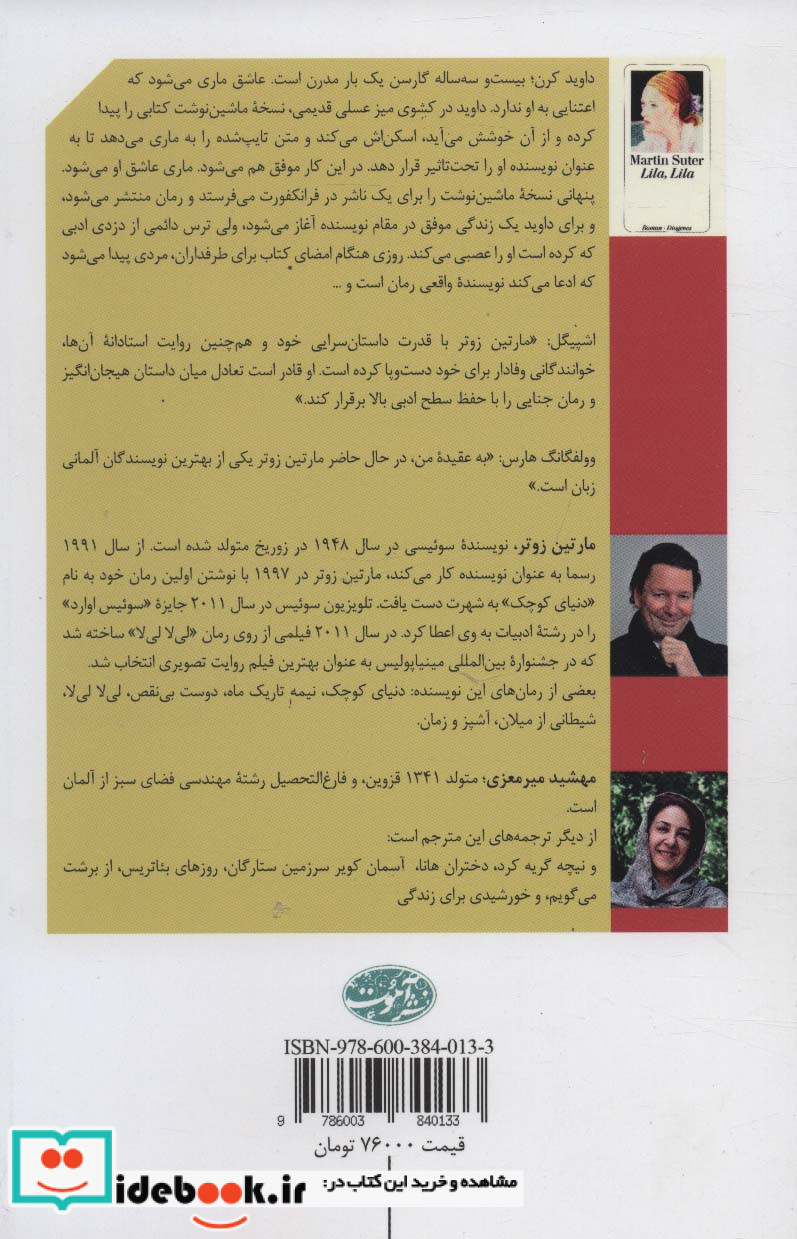 داوید کرن؛ بیست‌و سه‌ساله گارسن یک بار مدرن است. عاشق ماری می‌شود که
اعتنایی به او ندارد. داوید در کشوی میز عسلی قدیمی، نسخهٔ ماشین‌نوشت کتابی را پیدا
کرده و از آن خوشش می‌آید، اسکن‌اش می‌کند و متن تایپ‌شده را به ماری می‌دهد تا به
عنوان نویسنده او را تحت‌تاثیر قرار دهد. در این کار موفق هم می‌شود. ماری عاشق او می‌شود.
پنهانی نسخهٔ ماشین‌نوشت را برای یک ناشر در فرانکفورت می‌فرستد و رمان منتشر می‌شود،
و برای داوید یک زندگی موفق در مقام نویسنده آغاز می‌شود، ولی ترس دائمی از دزدی ادبی
که کرده است او را عصبی می‌کند. روزی هنگام امضای کتاب برای طرفداران، مردی پیدا می‌شود
که ادعا می‌کند نویسندهٔ واقعی رمان است و ...
اشپیگل: «مارتین زوتر با قدرت داستان‌سرایی خود و هم‌چنین روایت استادانهٔ آن‌ها،
خوانندگانی وفادار برای خود دست‌وپا کرده است. او قادر است تعادل میان داستان هیجان‌انگیز
و رمان جنایی را با حفظ سطح ادبی بالا برقرار کند.»
وولفگانگ هارس: «به عقیدهٔ من، در حال حاضر مارتین زوتر یکی از بهترین نویسندگان آلمانی
زبان است.»
مارتین زوتر، نویسندهٔ سوئیسی در سال ۱۹۴۸ در زوریخ متولد شده است. از سال ۱۹۹۱
رسما به عنوان نویسنده کار می‌کند، مارتین زوتر در ۱۹۹۷ با نوشتن اولین رمان خود به نام
«دنیای کوچک» به شهرت دست یافت. تلویزیون سوئیس در سال ۲۰۱۱ جایزهٔ «سوئیس اوارد»
را در رشتهٔ ادبیات به وی اعطا کرد. در سال ۲۰۱۱ فیلمی از روی رمان «لی‌لا لی‌لا» ساخته شد
که در جشنوارهٔ بین‌المللی مینیاپولیس به عنوان بهترین فیلم روایت تصویری انتخاب شد.
بعضی از رمان‌های این نویسنده: دنیای کوچک، نیمه تاریک ماه، دوست بی‌نقص، لی‌لا لی‌لا،
شیطانی از میلان، آشپز و زمان.
مهشید میرمعزی؛ متولد ۱۳۴۱ قزوین، و فارغ‌التحصیل رشتهٔ مهندسی فضای سبز از آلمان
است.
از دیگر ترجمه‌های این مترجم است:
و نیچه گریه کرد، دختران هانا، آسمان کویر سرزمین ستارگان، روزهای بئاتریس، از برشت
می‌گویم، و خورشیدی برای زندگی
Martin Suter
Lila, Lila
Roman · Diogenes
نشر آموت
ISBN-978-600-384-013-3
9 786003 840133
قیمت ۷۶۰۰۰ تومان
مشاهده و خرید این کتاب در:
idebook.ir